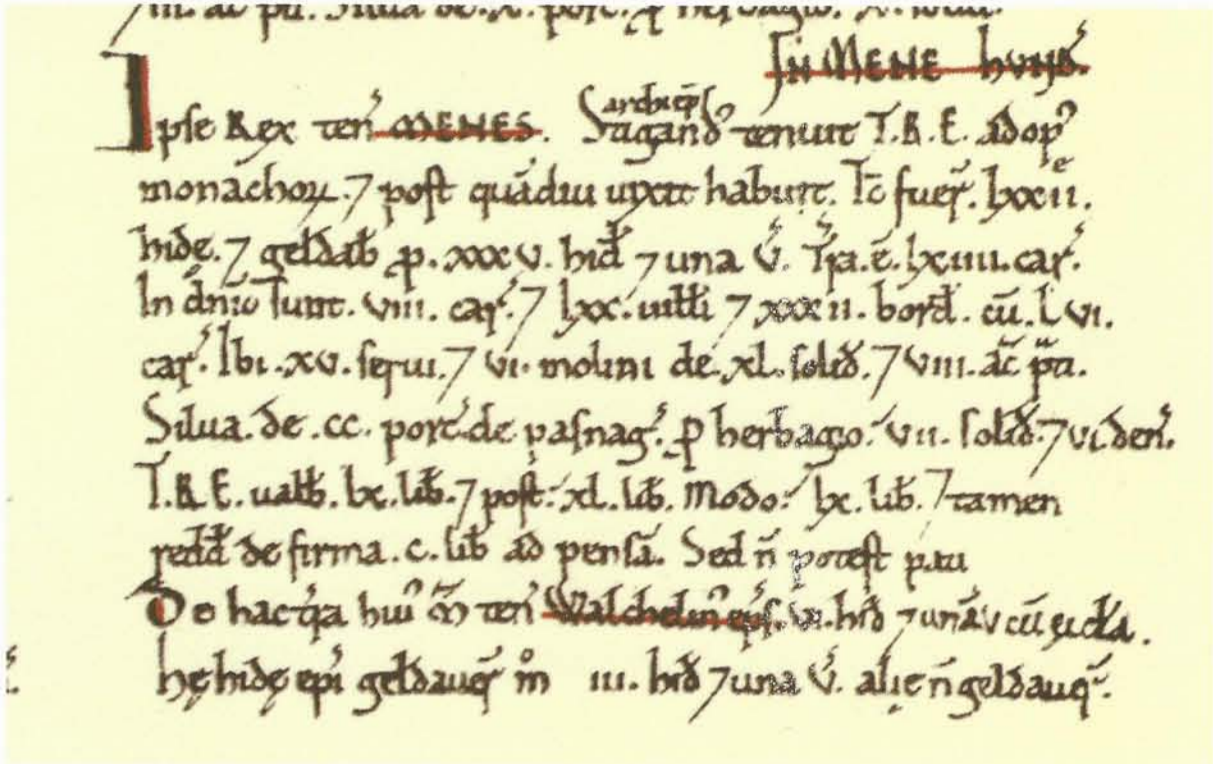 m. ac p̃ti. Silua de. x. porc̃. ꝑ herbagio. x. solid̃.
IN MENE HVND̃.
Ipse Rex ten̉ MENES. Stigand̉ archiep̃s tenuit T.R.E. ad op̉
monachoꝝ. ⁊ post quãdiu uixit habuit. Tc̃ fuer̃. lxxii.
hidę. ⁊ geldab̃ ꝓ. xxxv. hid̃ ⁊ una v̉. T̃ra. ẽ. lxiiii. car̉.
In dñio sunt. viii. car̉. ⁊ lxx. uilłi ⁊ xxxii. bord̃. cũ. lvi.
car̉. Ibi. xv. serui. ⁊ vi. molini de. xl. solid̃. ⁊ viii. ac̃ p̃ti.
Silua. de. cc. porc̉ de pasnag̉. ꝑ herbagio. vii. solid̃. ⁊ vi. den̉.
T.R.E. ualb̃. lx. lib̃. ⁊ post. xl. lib̃. Modo. lx. lib̃. ⁊ tamen
redd̃ de firma. c. lib̃ ad pensã. Sed ñ potest pati
De hac t̃ra huỉ M̃ ten̉ Walchelin̉ ep̃s. vi. hid̃ ⁊ unã v̉ cũ ęccła.
hę hidę ep̃i geldauer̃ m̊ iii. hid̃ ⁊ una v̉. alię ñ geldauer̃.